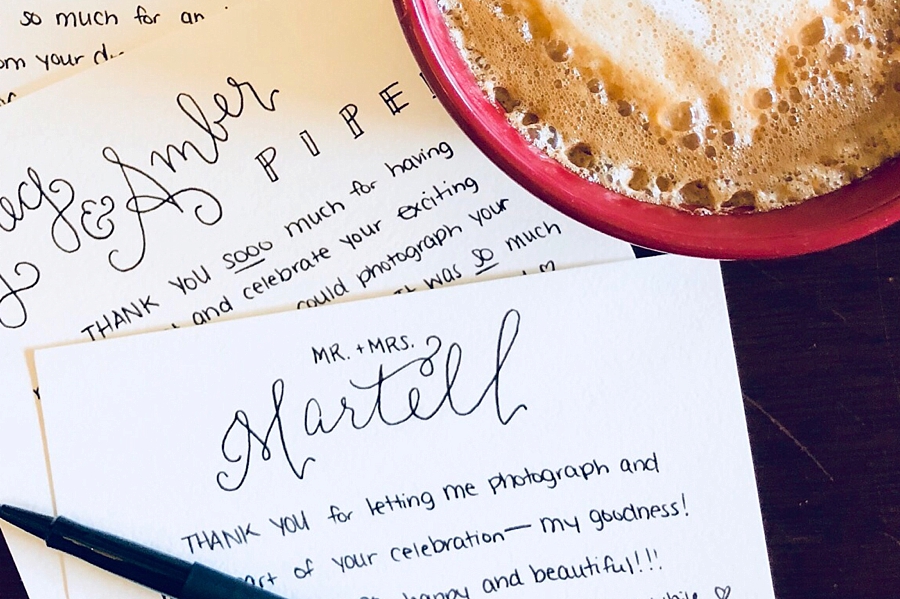 so much for an
your
& Amber
THANK YOU sooo much for having
and celebrate your exciting
could photograph your
was so much
MR. + MRS.
Martell
THANK YOU for letting me photograph and
of your celebration— my goodness!
happy and beautiful!!!
♡